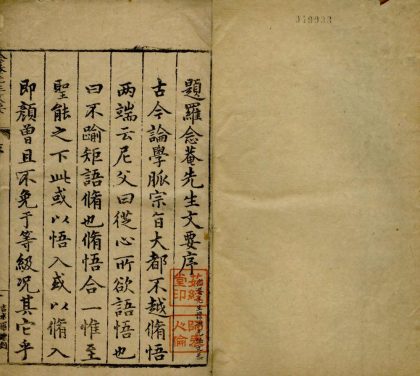 349933
題羅念菴先生文要序
古今論學脈宗旨大都不越脩悟
兩端云尼父曰從心所欲語悟也
曰不踰矩語脩也脩悟合一惟至
聖能之下此或以悟入或以脩入
即顏曾且不免于等級況其它乎